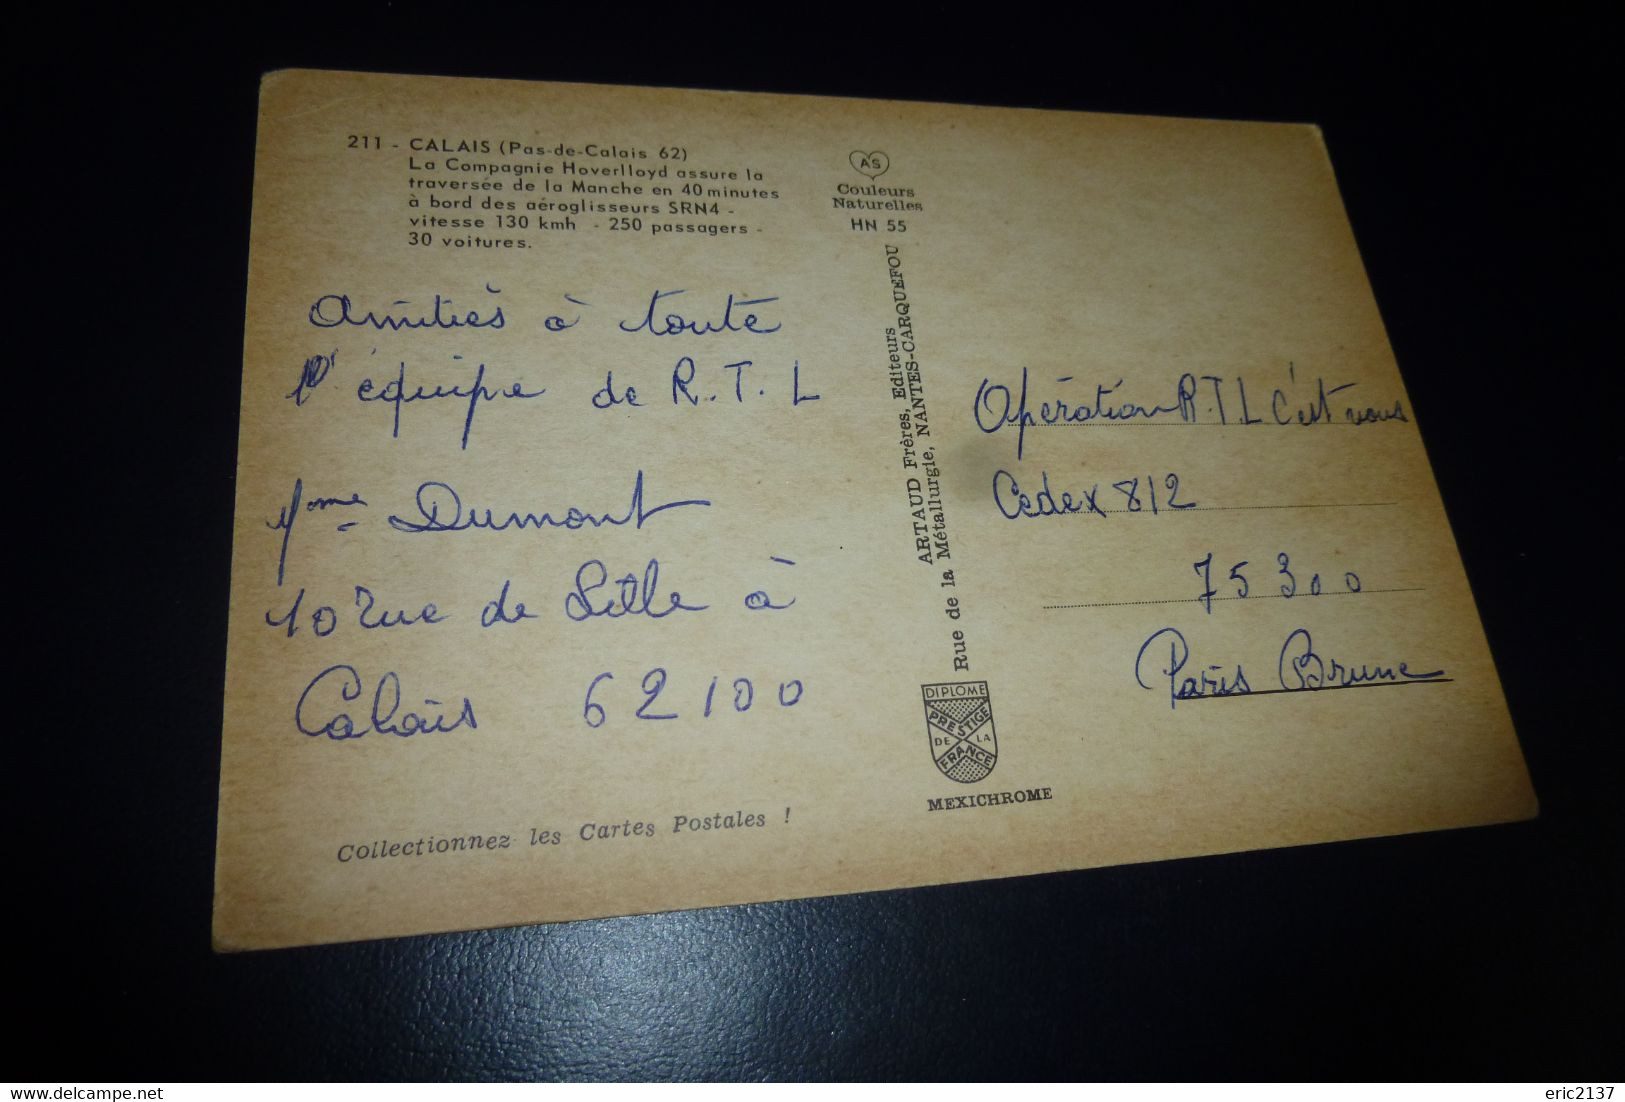 211 - CALAIS (Pas-de-Calais 62)
La Compagnie Hoverlloyd assure la
traversée de la Manche en 40 minutes
à bord des aéroglisseurs SRN4 -
vitesse 130 kmh - 250 passagers -
30 voitures.
Amitiés à toute
l'équipe de R.T.L
Mme Dumont
10 rue de Lille à
Calais 62100
Collectionnez les Cartes Postales !
AS
Couleurs
Naturelles
HN 55
ARTAUD Frères, Editeurs
Rue de la Métallurgie, NANTES-CARQUEFOU
DIPLOME
PRESTIGE
DE LA
FRANCE
MEXICHROME
Opération R.T.L C'est vous
Cedex 812
75300
Paris Brune
delcampe.net
eric2137